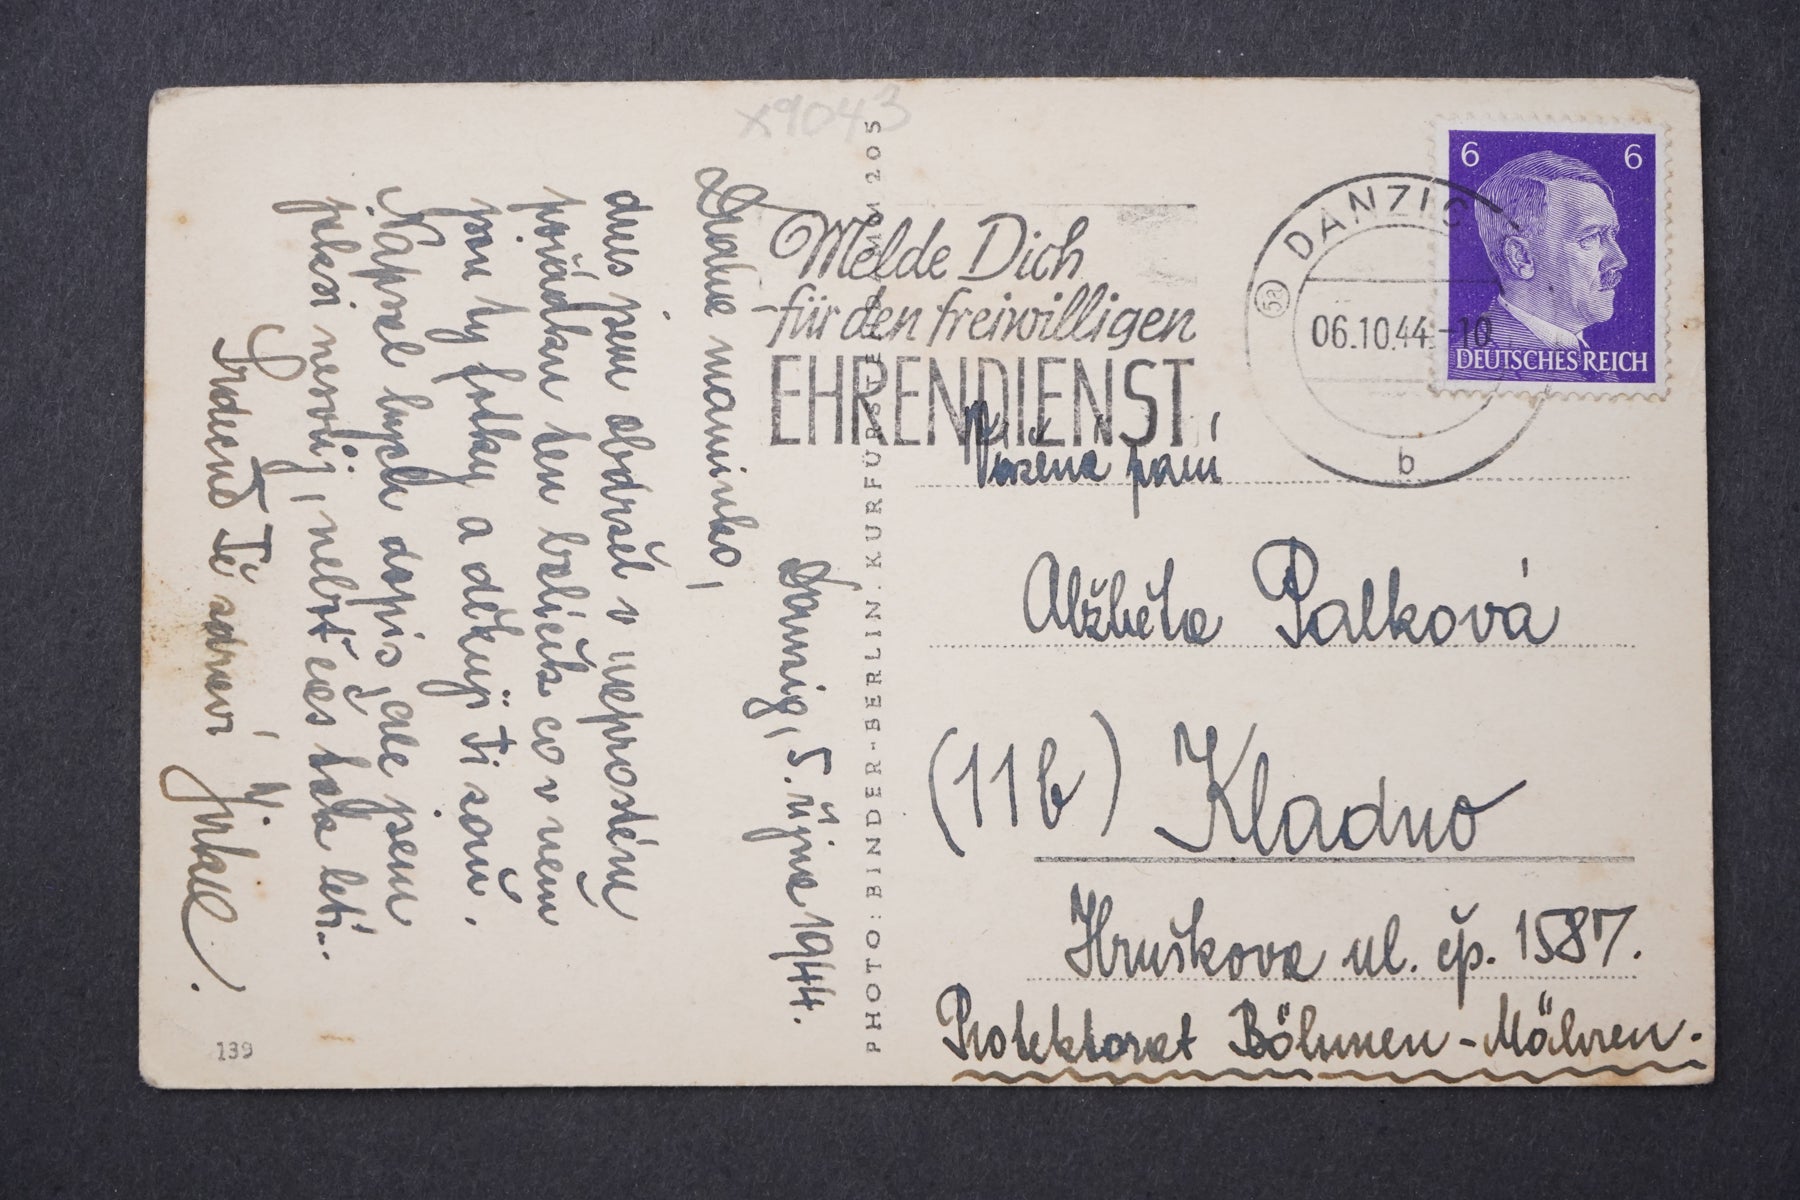 x9043
Danzig, 5. října 1944.
Drahá maminko,
dnes jsem obdržel v naprostém
pořádku ten balíček co v něm
jsou ty fotky a děkuji Ti zaň.
Napsal bych dopis, ale jsem
jaksi nesvůj, neboť čas tak letí..
Srdečně Tě zdraví
Jirka.
139
PHOTO: BINDER-BERLIN. KURFÜRSTENDAMM 205
Melde Dich
für den freiwilligen
EHRENDIENST
DANZIG
(5a)
06.10.44-10
b
6 6
DEUTSCHES REICH
Vážená paní
Alžběta Palková
(11b) Kladno
Hruškova ul. čp. 1587.
Protektorat Böhmen-Mähren.